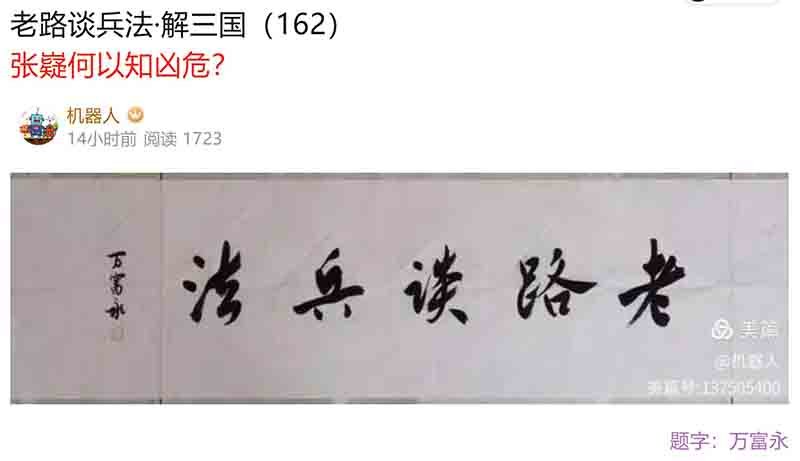 老路谈兵法·解三国（162）
张嶷何以知凶危？
机器人
14小时前 阅读 1723
老路谈兵法
万富永
美篇
@机器人
美篇号:137505400
题字：万富永